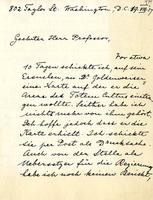 802 Taylor St. Washington, D.C. 
Geehrter Herr Professor,
Vor etwa
10 Tagen schickte ich, auf Ihr
Ersuchen, an Dr. Goldenweiser
eine Karte auf der er die
Areas des Totem Cultus eintra-
gen wollte. Seither habe ich
nichts mehr von ihm gehört.
Ich hoffe jedoch dass er die
Karte erhielt. Ich schickte
sie per Post als Drucksache.
Auch von der Stelle als
Uebersetzer für die Regierung
habe ich noch keinen Bericht,